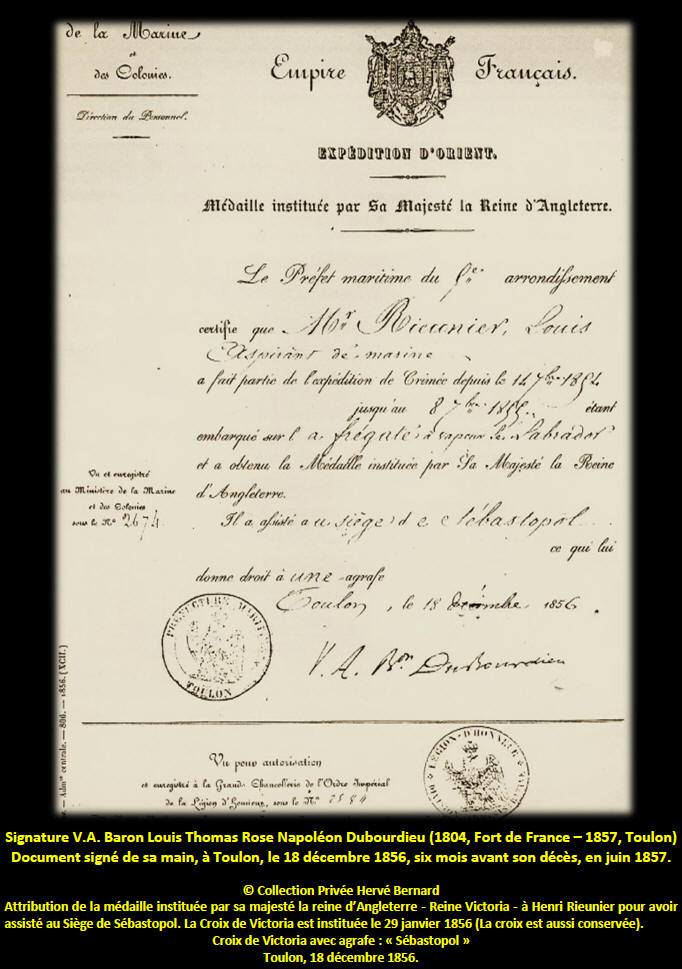 de la Marine
et
des Colonies.
Direction du Personnel.
Empire Français.
EXPÉDITION D'ORIENT.
Médaille instituée par Sa Majesté la Reine d'Angleterre.
Le Préfet maritime du 5e arrondissement
certifie que Mr Rieunier, Louis
Aspirant de marine
a fait partie de l'expédition de Crimée depuis le 14 7bre 1854
jusqu'au 8 7bre 1855 étant
embarqué sur la frégate à vapeur le Labrador
et a obtenu la Médaille instituée par Sa Majesté la Reine
d'Angleterre.
Il a assisté au siège de Sébastopol
ce qui lui
donne droit à une agrafe
Toulon, le 18 décembre 1856.
V. A. Bon DuBourdieu
Vu et enregistré
au Ministère de la Marine
et des Colonies
sous le No 2674.
PRÉFECTURE MARITIME
TOULON
Admon centrale. — 800. — 1856. (XCII.)
Vu pour autorisation
et enregistré à la Grande Chancellerie de l'Ordre Impérial
de la Légion d'Honneur, sous le No
LÉGION D'HONNEUR
Signature V.A. Baron Louis Thomas Rose Napoléon Dubourdieu (1804, Fort de France – 1857, Toulon)
Document signé de sa main, à Toulon, le 18 décembre 1856, six mois avant son décès, en juin 1857.
© Collection Privée Hervé Bernard
Attribution de la médaille instituée par sa majesté la reine d'Angleterre - Reine Victoria - à Henri Rieunier pour avoir
assisté au Siège de Sébastopol. La Croix de Victoria est instituée le 29 janvier 1856 (La croix est aussi conservée).
Croix de Victoria avec agrafe : « Sébastopol »
Toulon, 18 décembre 1856.